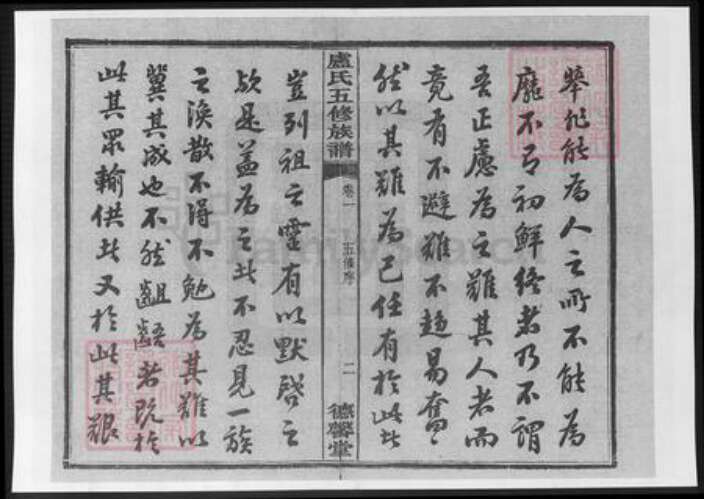 舉非能為人之所不能為
靡不有初鮮終者乃不謂
吾正慮為之難其人者而
竟有不避難不趨易奮
然以其難為己任有於此此
盧氏五修族譜 卷一 五修序 二 德馨堂
豈列祖之靈有以默啓之
歟是益為之此不忍見一族
之渙散不得不勉為其難以
冀其成也不然齟齬者既於
此其眾輸供此又於此其艱
FamilySearch